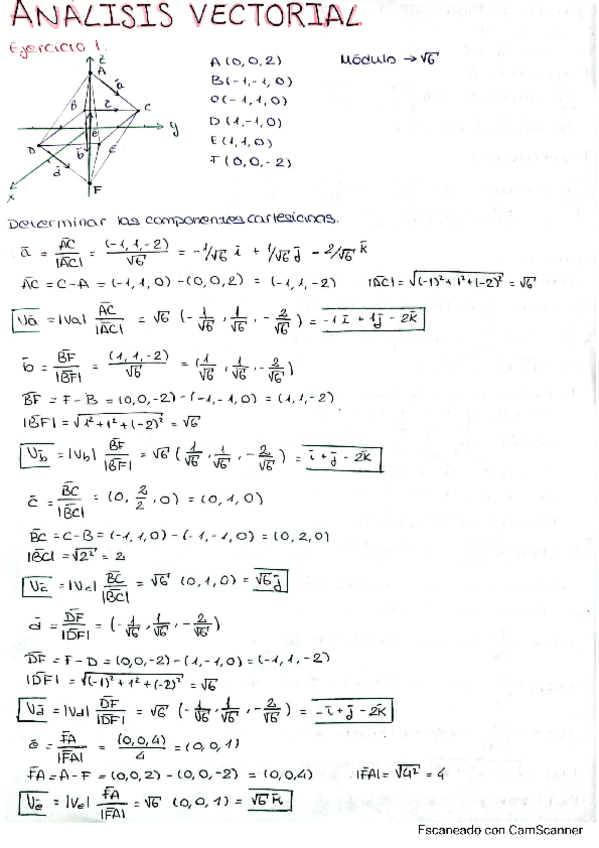 ANÁLISIS VECTORIAL
Ejercicio 1.
A(0,0,2) Módulo → √6
B(-1,-1,0)
C(-1,1,0)
D(1,-1,0)
E(1,1,0)
F(0,0,-2)
z
A
a
B
c
C
y
e
D
b
E
d
F
x
Determinar las componentes cartesianas.
ā = AC/|AC| = (-1,1,-2)/√6 = -1/√6 i + 1/√6 j - 2/√6 k
AC = C-A = (-1,1,0)-(0,0,2) = (-1,1,-2) |AC| = √(-1)²+1²+(-2)² = √6
Va = |Va| AC/|AC| = √6 (-1/√6, 1/√6, -2/√6) = -1i + 1j - 2k
b = BF/|BF| = (1,1,-2)/√6 = (1/√6, 1/√6, -2/√6)
BF = F-B = (0,0,-2)-(-1,-1,0) = (1,1,-2)
|BF| = √1²+1²+(-2)² = √6
Vb = |Vb| BF/|BF| = √6 (1/√6, 1/√6, -2/√6) = i + j - 2k
c = BC/|BC| = (0, 2/2, 0) = (0,1,0)
BC = C-B = (-1,1,0)-(-1,-1,0) = (0,2,0)
|BC| = √2² = 2
Vc = |Vc| BC/|BC| = √6 (0,1,0) = √6 j
d = DF/|DF| = (-1/√6, 1/√6, -2/√6)
DF = F-D = (0,0,-2)-(1,-1,0) = (-1,1,-2)
|DF| = √(-1)²+1²+(-2)² = √6
Vd = |Vd| DF/|DF| = √6 (-1/√6, 1/√6, -2/√6) = -i + j - 2k
e = FA/|FA| = (0,0,4)/4 = (0,0,1)
FA = A-F = (0,0,2)-(0,0,-2) = (0,0,4) |FA| = √4² = 4
Ve = |Ve| FA/|FA| = √6 (0,0,1) = √6 k
Escaneado con CamScanner